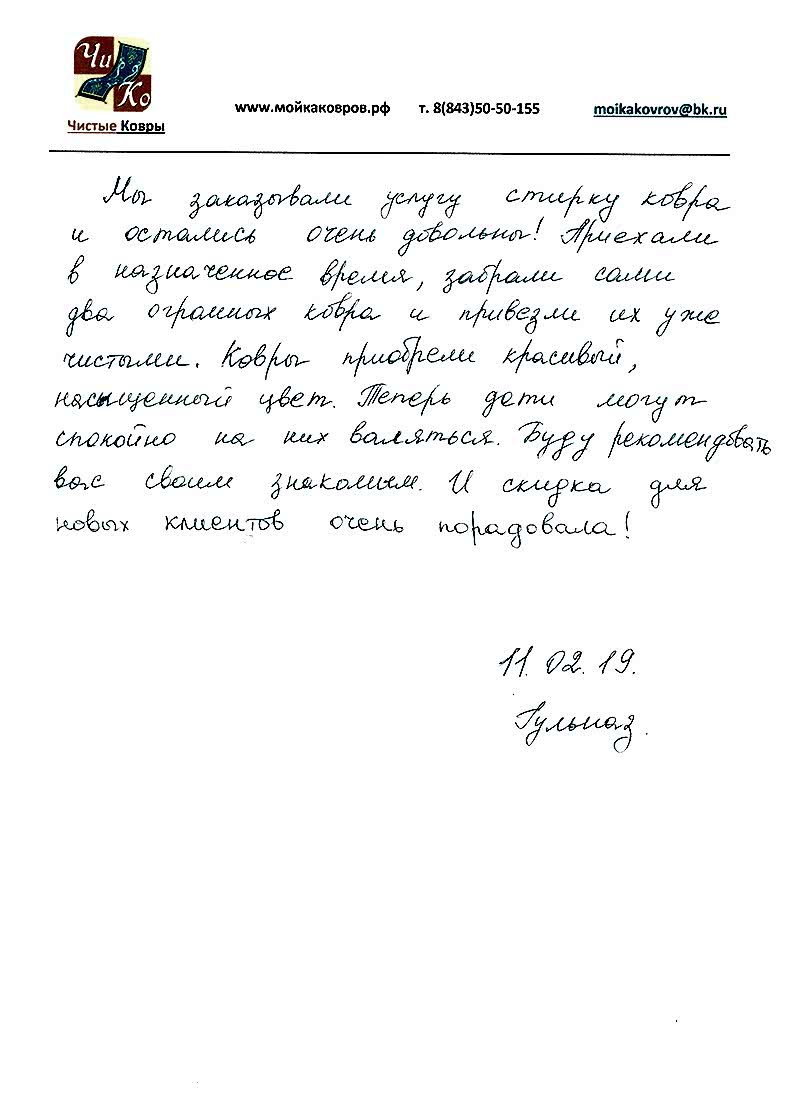 Чи
Ко
Чистые Ковры
www.мойкаковров.рф т. 8(843)50-50-155 moikakovrov@bk.ru
Мы заказывали услугу стирку ковра
и остались очень довольны! Приехали
в назначенное время, забрали сами
два огромных ковра и привезли их уже
чистыми. Ковры приобрели красивый,
насыщенный цвет. Теперь дети могут
спокойно на них валяться. Буду рекомендовать
вас своим знакомым. И скидка для
новых клиентов очень порадовала!
11.02.19.
Гульназ.